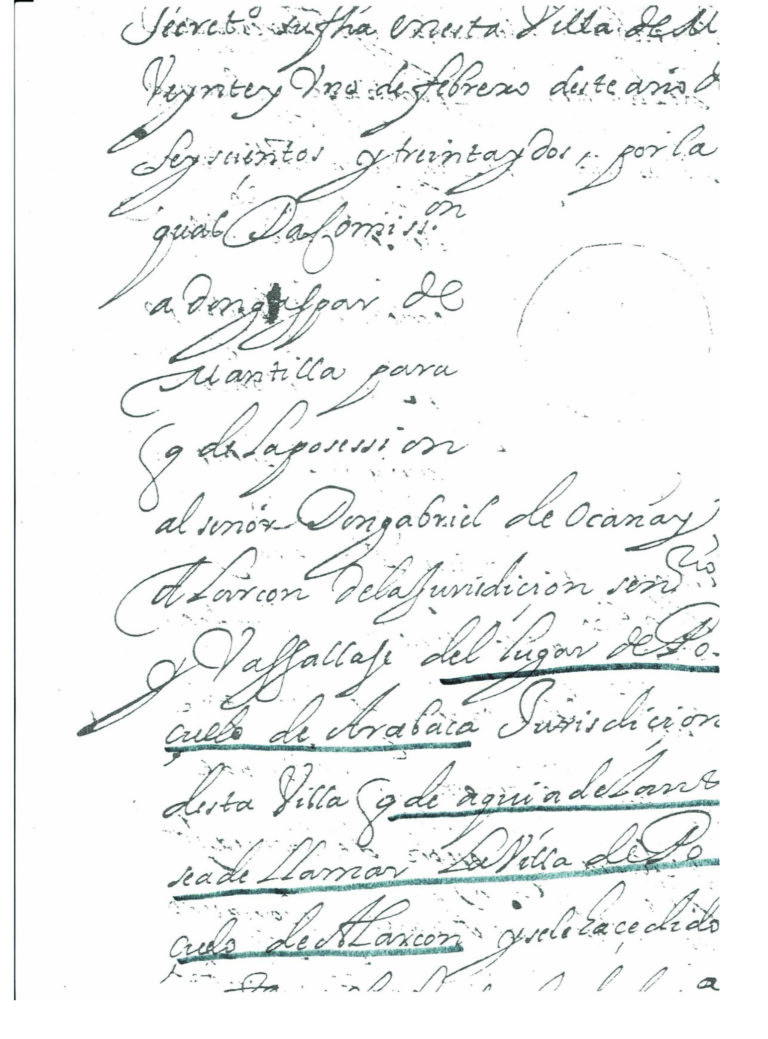 Secret.º su fha en esta Villa de M
Veynte y Uno de febrero deste año d
Seyscientos y treinta y dos, por la
qual Da Comiss.on
a Don gaspar de
Mantilla para
q de la posession
al señor Don gabriel de Ocaña y
Alarcon de la Jurisdicion señ.rio
y Vassallaje del lugar de Po-
cuelo de Arabaca Jurisdicion
desta Villa q de aqui adelante
sea de llamar La Villa de Po
cuelo de Alarcon y se le ha cedido